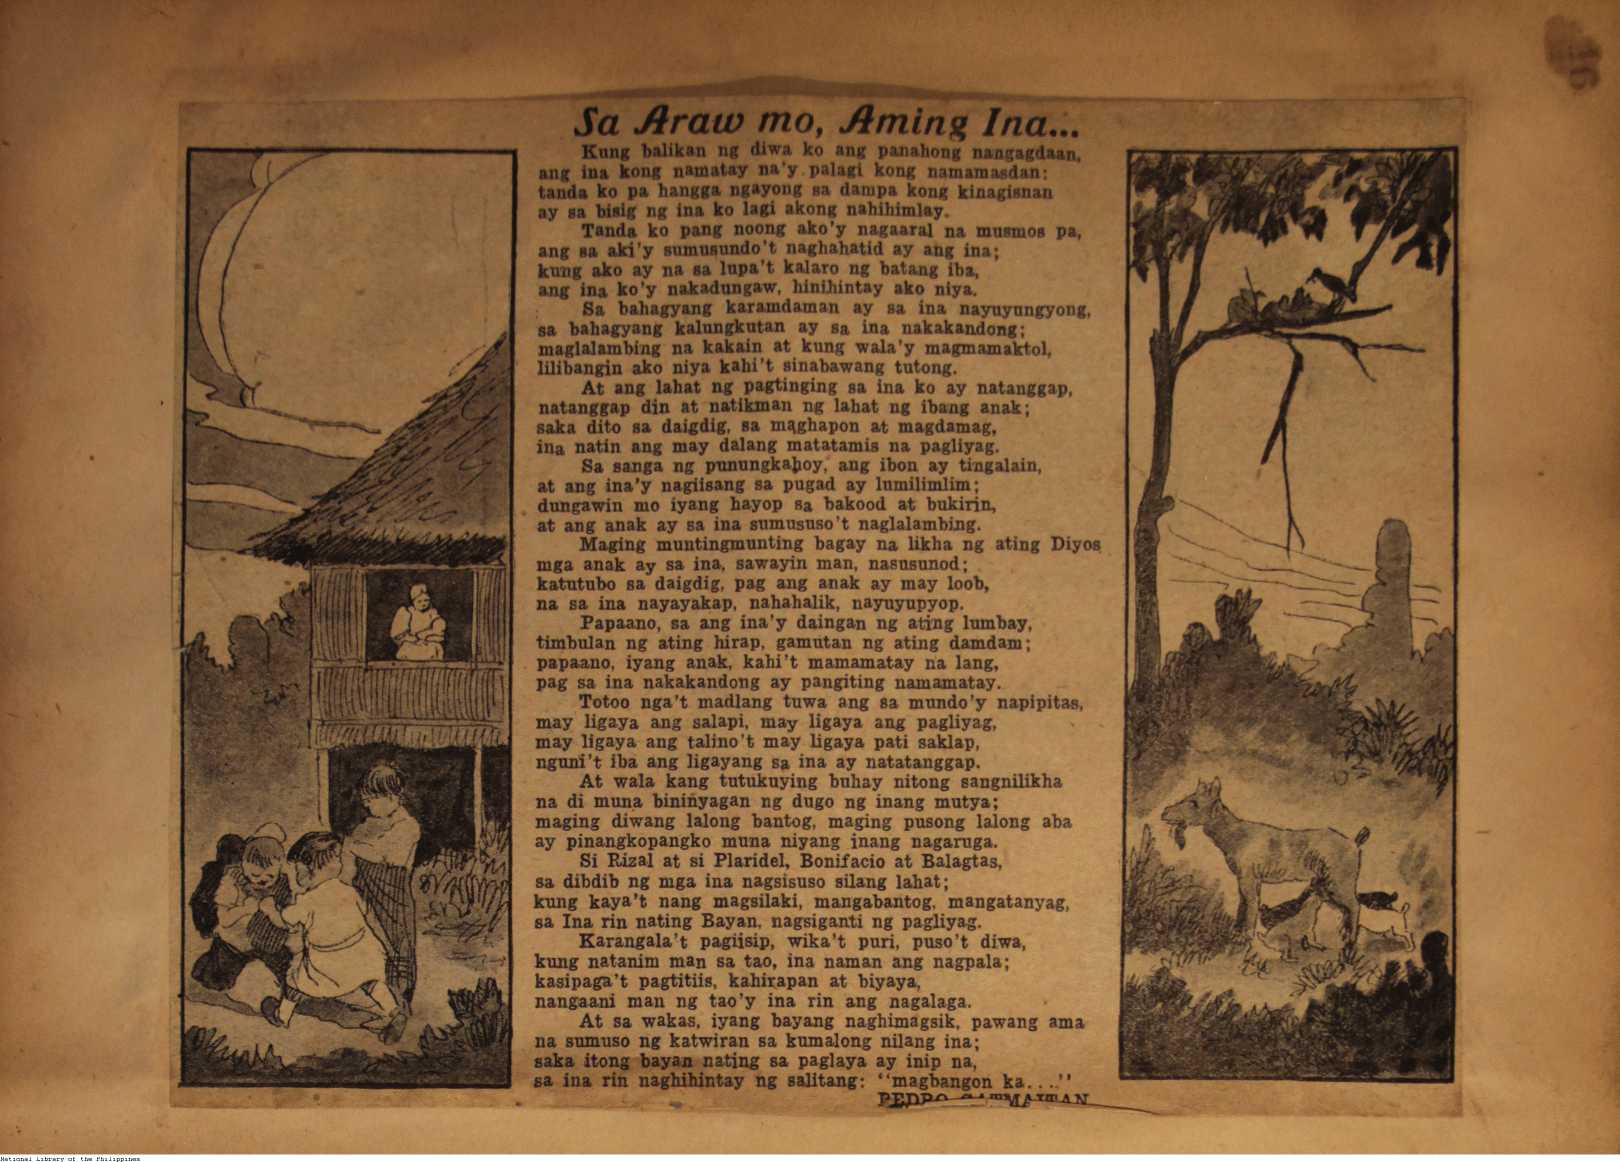 Sa Araw mo, Aming Ina...
Kung balikan ng diwa ko ang panahong nangagdaan,
ang ina kong namatay na'y palagi kong namamasdan:
tanda ko pa hangga ngayong sa dampa kong kinagisnan
ay sa bisig ng ina ko lagi akong nahihimlay.
Tanda ko pang noong ako'y nagaaral na musmos pa,
ang sa aki'y sumusundo't naghahatid ay ang ina;
kung ako ay na sa lupa't kalaro ng batang iba,
ang ina ko'y nakadungaw, hinihintay ako niya.
Sa bahagyang karamdaman ay sa ina nayuyungyong,
sa bahagyang kalungkutan ay sa ina nakakandong;
maglalambing na kakain at kung wala'y magmamaktol,
lilibangin ako niya kahi't sinabawang tutong.
At ang lahat ng pagtinging sa ina ko ay natanggap,
natanggap din at natikman ng lahat ng ibang anak;
saka dito sa daigdig, sa maghapon at magdamag,
ina natin ang may dalang matatamis na pagliyag.
Sa sanga ng punungkahoy, ang ibon ay tingalain,
at ang ina'y nagiisang sa pugad ay lumilimlim;
dungawin mo iyang hayop sa bakood at bukirin,
at ang anak ay sa ina sumususo't naglalambing.
Maging muntingmunting bagay na likha ng ating Diyos
mga anak ay sa ina, sawayin man, nasusunod;
katutubo sa daigdig, pag ang anak ay may loob,
na sa ina nayayakap, nahahalik, nayuyupyop.
Papaano, sa ang ina'y daingan ng ating lumbay,
timbulan ng ating hirap, gamutan ng ating damdam;
papaano, iyang anak, kahi't mamamatay na lang,
pag sa ina nakakandong ay pangiting namamatay.
Totoo nga't madlang tuwa ang sa mundo'y napipitas,
may ligaya ang salapi, may ligaya ang pagliyag,
may ligaya ang talino't may ligaya pati saklap,
nguni't iba ang ligayang sa ina ay natatanggap.
At wala kang tutukuying buhay nitong sangnilikha
na di muna bininyagan ng dugo ng inang mutya;
maging diwang lalong bantog, maging pusong lalong aba
ay pinangkopangko muna niyang inang nagaruga.
Si Rizal at si Plaridel, Bonifacio at Balagtas,
sa dibdib ng mga ina nagsisuso silang lahat;
kung kaya't nang magsilaki, mangabantog, mangatanyag,
sa Ina rin nating Bayan, nagsiganti ng pagliyag.
Karangala't pagiisip, wika't puri, puso't diwa,
kung natanim man sa tao, ina naman ang nagpala;
kasipaga't pagtitiis, kahirapan at biyaya,
nangaani man ng tao'y ina rin ang nagalaga.
At sa wakas, iyang bayang naghimagsik, pawang ama
na sumuso ng katwiran sa kumalong nilang ina;
saka itong bayan nating sa paglaya ay inip na,
sa ina rin naghihintay ng salitang: "magbangon ka...."
PEDRO GATMAITAN
National Library of the Philippines